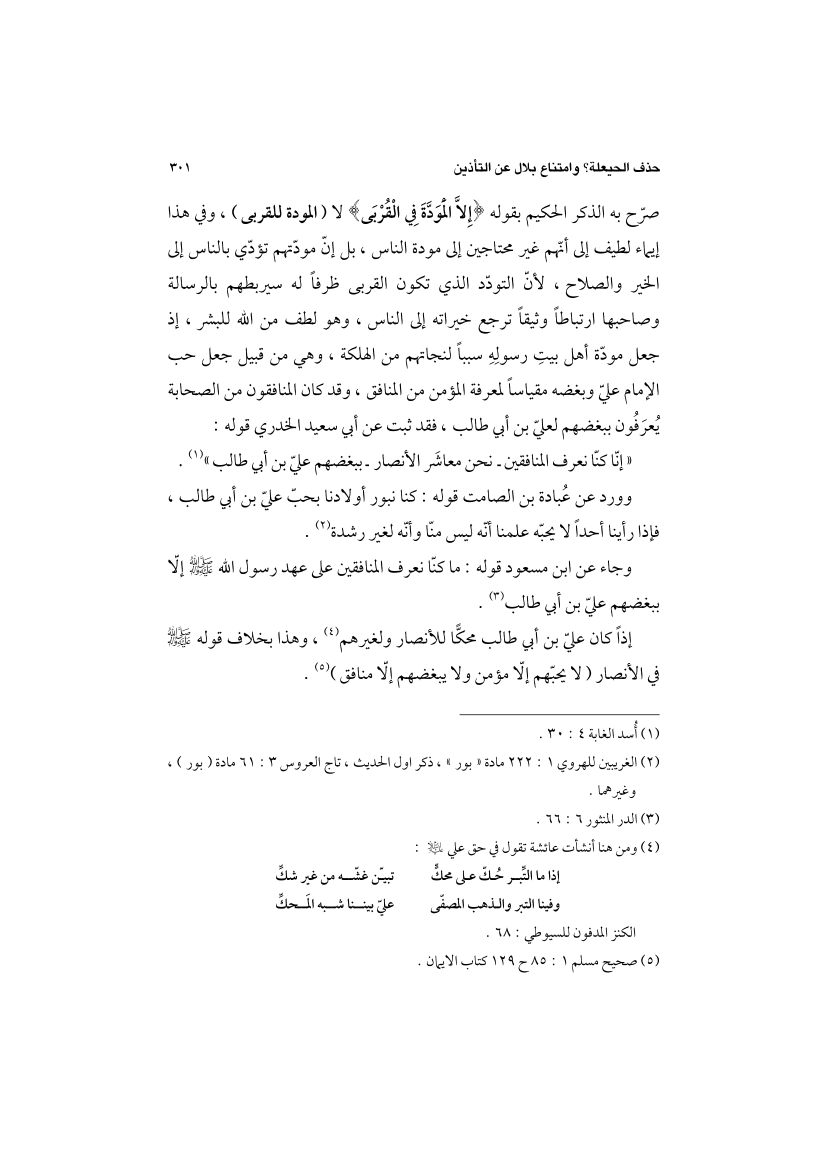 حذف الحيعلة؟ وامتناع بلال عن التأذين ٣٠١
صرّح به الذكر الحكيم بقوله ﴿إِلاَّ الْمَوَدَّةَ فِي الْقُرْبَى﴾ لا ( المودة للقربى ) ، وفي هذا
إيماء لطيف إلى أنّهم غير محتاجين إلى مودة الناس ، بل إنّ مودّتهم تؤدّي بالناس إلى
الخير والصلاح ، لأنّ التودّد الذي تكون القربى ظرفاً له سيربطهم بالرسالة
وصاحبها ارتباطاً وثيقاً ترجع خيراته إلى الناس ، وهو لطف من الله للبشر ، إذ
جعل مودّة أهل بيتِ رسولِهِ سبباً لنجاتهم من الهلكة ، وهي من قبيل جعل حب
الإمام عليّ وبغضه مقياساً لمعرفة المؤمن من المنافق ، وقد كان المنافقون من الصحابة
يُعرَفُون ببغضهم لعليّ بن أبي طالب ، فقد ثبت عن أبي سعيد الخدري قوله :
« إنّا كنّا نعرف المنافقين ـ نحن معاشَر الأنصار ـ ببغضهم عليّ بن أبي طالب »(١) .
وورد عن عُبادة بن الصامت قوله : كنا نبور أولادنا بحبّ عليّ بن أبي طالب ،
فإذا رأينا أحداً لا يحبّه علمنا أنّه ليس منّا وأنّه لغير رشدة(٢) .
وجاء عن ابن مسعود قوله : ما كنّا نعرف المنافقين على عهد رسول الله ﷺ إلّا
ببغضهم عليّ بن أبي طالب(٣) .
إذاً كان عليّ بن أبي طالب محكًّا للأنصار ولغيرهم(٤) ، وهذا بخلاف قوله ﷺ
في الأنصار ( لا يحبّهم إلّا مؤمن ولا يبغضهم إلّا منافق )(٥) .
(١) أُسد الغابة ٤ : ٣٠ .
(٢) الغريبين للهروي ١ : ٢٢٢ مادة « بور » ، ذكر اول الحديث ، تاج العروس ٣ : ٦١ مادة ( بور ) ،
وغيرهما .
(٣) الدر المنثور ٦ : ٦٦ .
(٤) ومن هنا أنشأت عائشة تقول في حق علي عليه السلام :
إذا ما التِّبـر حُـكّ عـلى محكٍّ تبيـّن غشّـه من غير شكٍّ
وفينا التبر والـذهب المصفّى عليّ بيننـا شـبه المَـحكِّ
الكنز المدفون للسيوطي : ٦٨ .
(٥) صحيح مسلم ١ : ٨٥ ح ١٢٩ كتاب الايمان .